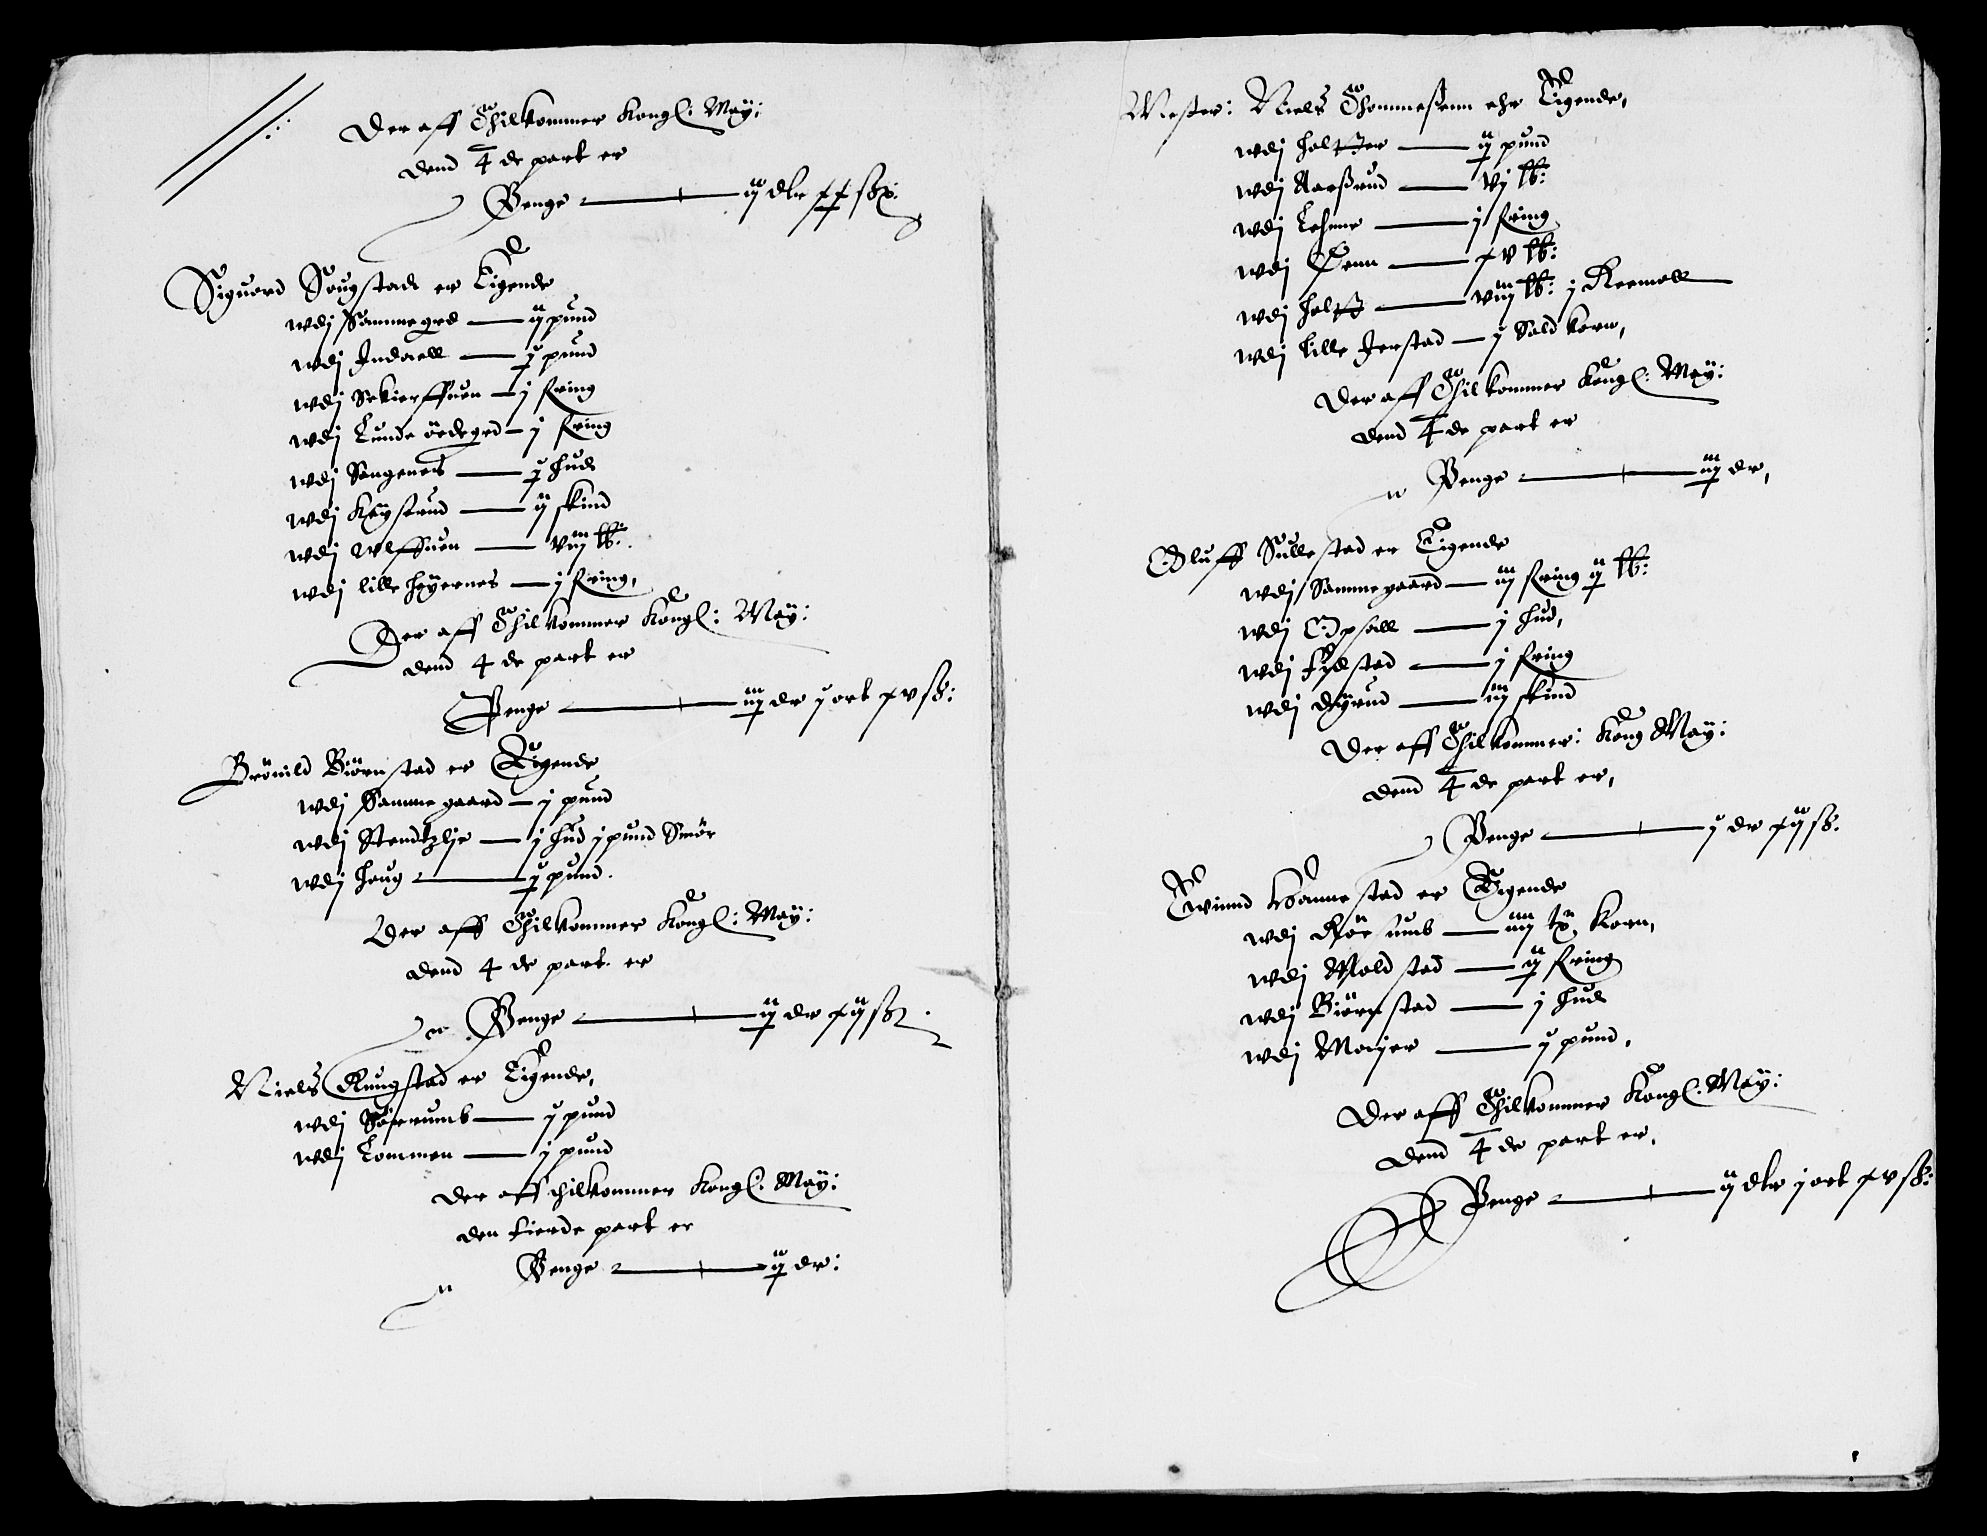 Der aff Thilkommer Kongl: May:
dend 4de part er
Penge — ij dlr xx sk.
Siguord Sougstad er Eigende
wdj Sammegrd — ij pund
wdj Indaell — j pund
wdj Schierffuen — j fring
wdj Lunde ödegrd — j fring
wdj Sangenes — j hud
wdj Køysrud — ij skind
wdj Wlffuen — viij lb:
wdj lille Høyernes — j fring,
Der aff Thilkommer Kongl: May:
dend 4 de part er
Penge — iij dr j ort xv sk:
Brönild Biörnstad er Eigende
wdj Sammegaard — j pund
wdj Stendtzlje — j hud j pund Smör
wdj Houg — j pund.
Der aff Thilkommer Kongl: May:
dend 4 de part er
Penge — ij dr xij sk.
Niels Rungstad er Eigende,
wdj Sörumb — j pund
wdj Lommen — j pund
Der aff thilkommer Kongl: May:
den fierde part er
Penge — ij dr:
Mester: Niels Thommeßenn ehr Eigende,
wdj Holter — ij pund
wdj Aaeßrud — vj lb:
wdj Lehne — j fring
wdj Denn — xv lb:
wdj Holt — viij lb: j Kermell
wdj lille Jerstad — j Sold korn,
Der aff Thilkommer Kongl: May:
dend 4 de part er
Penge — iij dr,
Oluff Sullestad er Eigende
wdj Sammegaard — iij fring ij lb:
wdj Opsall — j hud,
wdj Fydstad — j fring
wdj Døyrud — iij skind
Der aff Thilkommer: Kong May:
dend 4 de part er,
Penge — j dr xij sk.
Ewind Wonnestad er Eigende
wdj Rör umb — iiij tr. korn,
wdj Moldstad — ij fring
wdj Biörnstad — j hud
wdj Moijer — j pund,
Der aff Thilkommer Kongl: May:
dend 4 de part er,
Penge — ij dlr j ort xv sk: